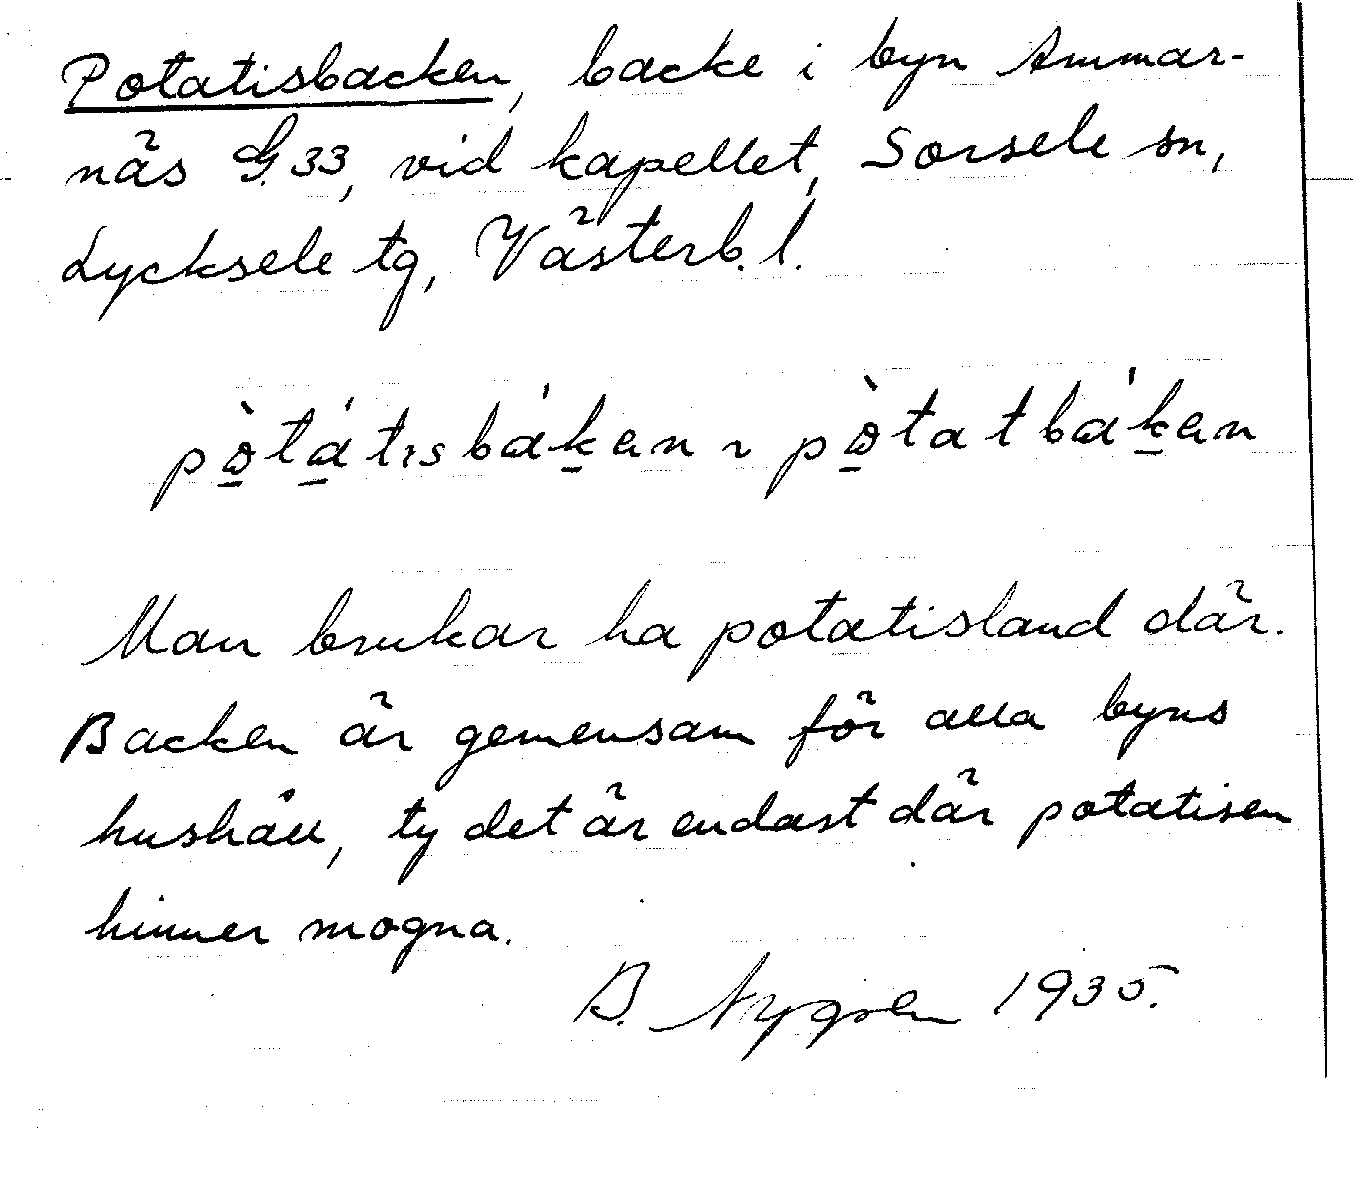 Potatisbacken, backe i byn Ammar-
näs G.33, vid kapellet, Sorsele sn,
Lycksele tg, Västerb. l.
pò̱tá̱tısbáḵen ~ pò̱tatbáḵen
Man brukar ha potatisland där.
Backen är gemensam för alla byns
hushåll, ty det är endast där potatisen
hinner mogna.
B. Nygren 1935.